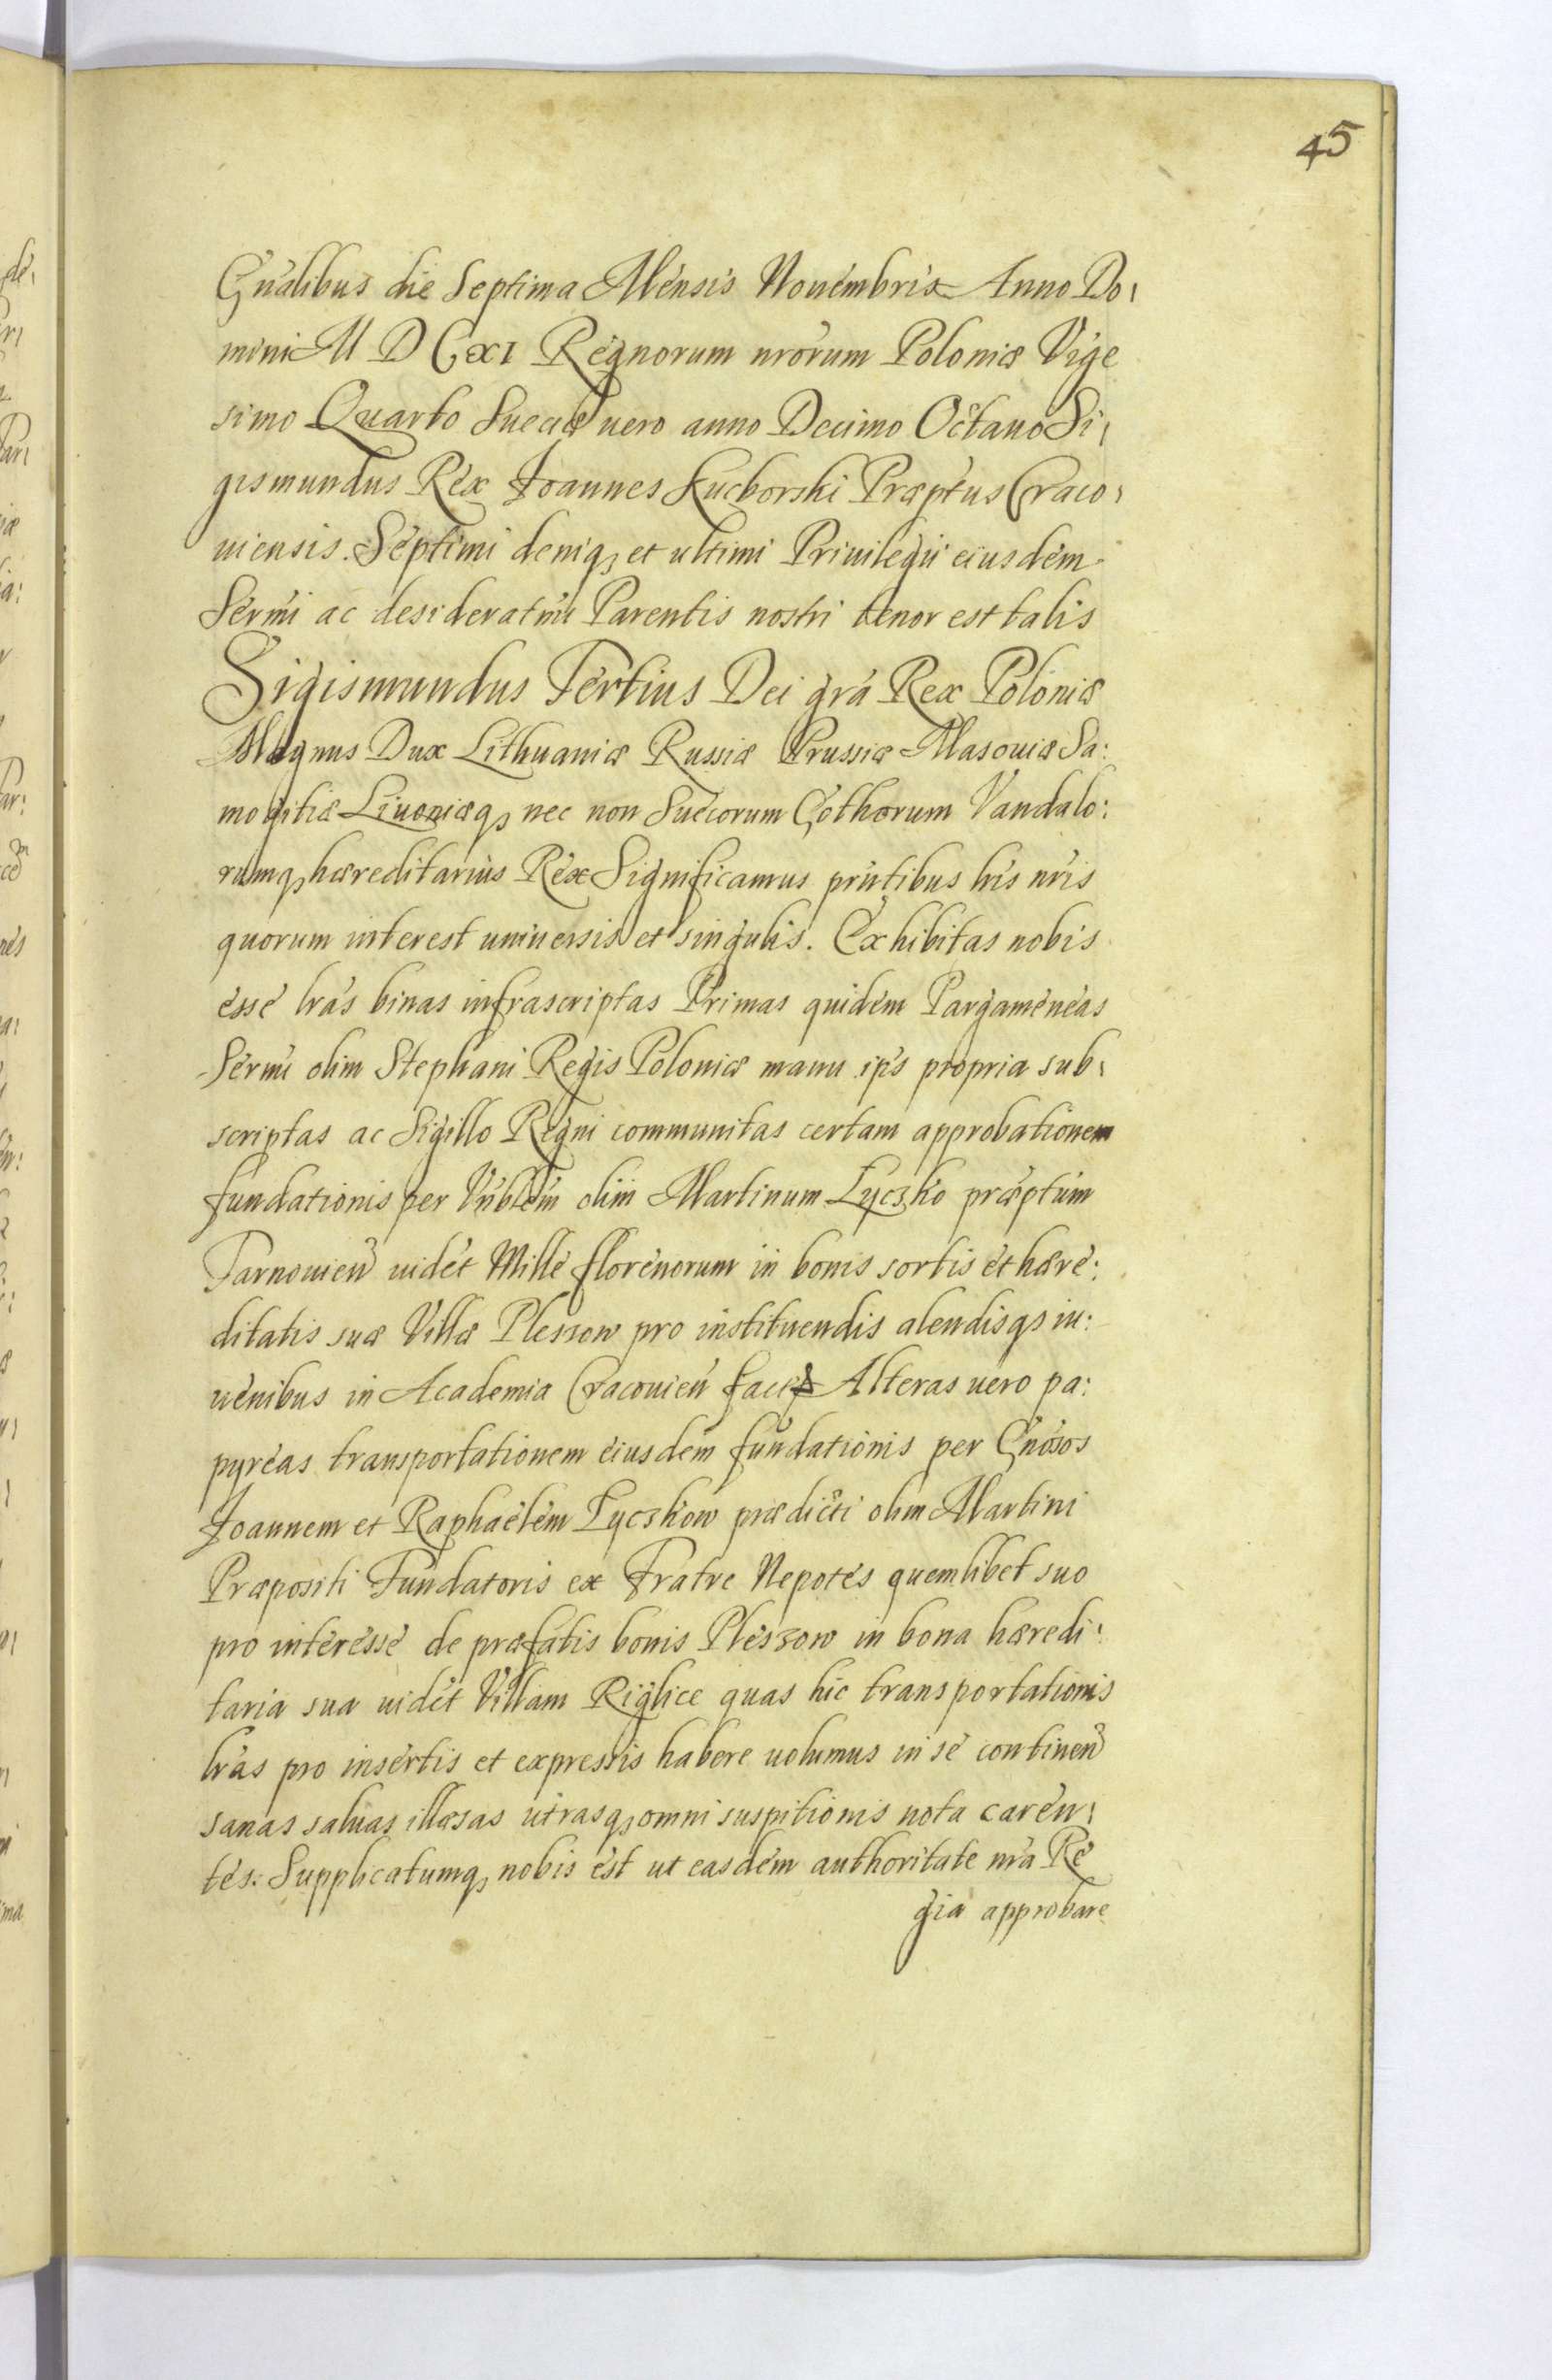 45
Gnalibus die Septima Mensis Nouembris Anno Do,
mini M D C XI Regnorum nrorum Poloniæ Vige
simo Quarto Sueciæ uero anno Decimo Octauo Si,
gismundus Rex Joannes Kucborski Præptus Craco,
uiensis. Septimi deniqꝫ et ultimi Priuilegii eiusdem
Sermi ac desideratmi Parentis nostri tenor est talis
Sigismundus Tertius Dei gra Rex Poloniæ
Magnus Dux Lithuaniæ Russiæ Prussiæ Masouiæ Sa:
mogitiæ Liuoniæqꝫ nec non Suecorum Gothorum Vandalo:
rumqꝫ hæreditarius Rex Significamus prntibus lris nris
quorum interest uniuersis et singulis. Exhibitas nobis
esse lras binas infrascriptas Primas quidem Pargameneas
Sermi olim Stephani Regis Poloniæ manu ips propria sub,
scriptas ac Sigillo Regni communitas certam approbationem
fundationis per Vnblem olim Martinum Lyczko præptum
Tarnouien uidet Mille florenorum in bonis sortis et hære:
ditatis suæ Villæ Pleszow pro instituendis alendisqꝫ iu:
uenibus in Academia Cracouien Alteras uero pa:
pyreas transportationem eiusdem fundationis per Gnosos
Joannem et Raphaelem Lyczkow prædicti olim Martini
Præpositi Fundatoris ex Fratre Nepotes quemlibet suo
pro interesse de præfatis bonis Pleszow in bona hæredi:
taria sua uidet Villam Riglice quas hic transportationis
lras pro insertis et expressis habere uolumus in se continen
sanas saluas illæsas utrasqꝫ omni suspitionis nota caren,
tes. Supplicatumqꝫ nobis est ut easdem authoritate nra Re
gia approbare